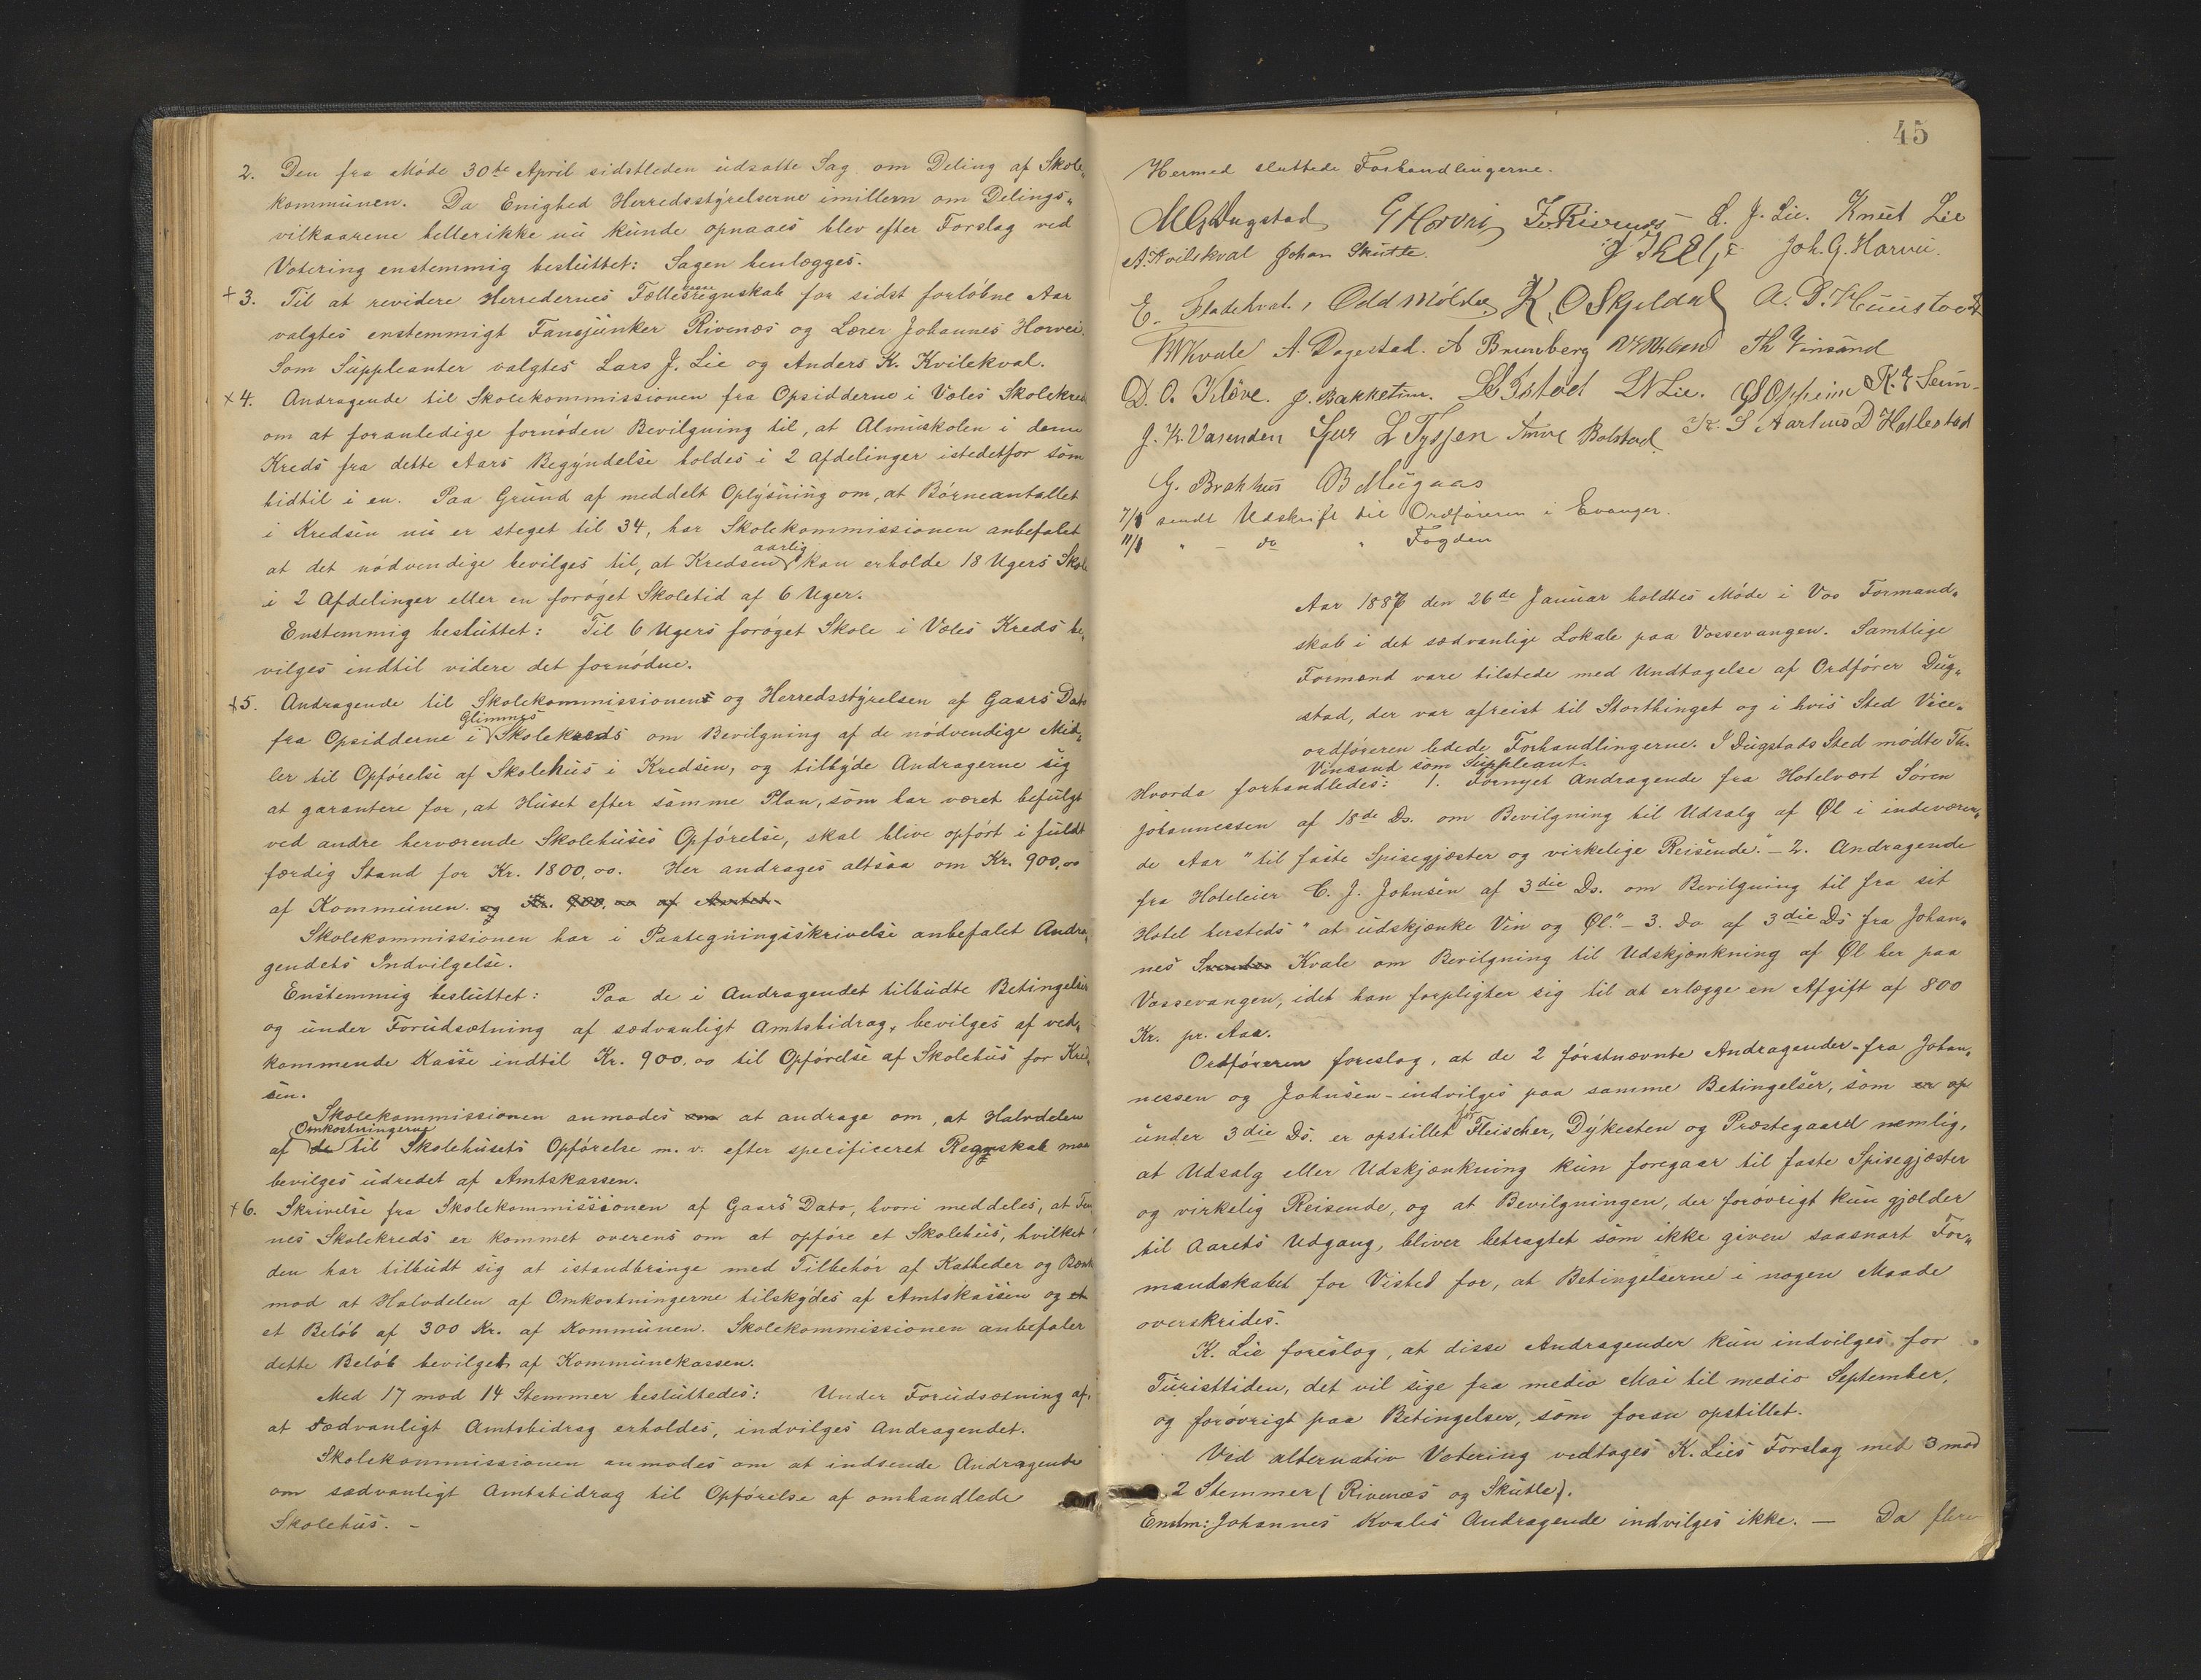 2. Den fra Møde 30te April sidstleden udsatte Sag om Deling af Skole„
kommunen. Da Enighed Herredsstyrelserne imillem om Delings„
vilkaarene hellerikke nu kunde opnaaes blev efter Forslag ved
Votering enstemmig besluttet: Sagen henlægges.
+ 3. Til at revidere Herredernes Fællesregnskab for sidst forløbne Aar
valgtes enstemmigt Fanejunker Rivenæs og Lærer Johannes Horvei.
Som Suppleanter valgtes Lars J. Lie og Anders K. Kvilekval.
x 4. Andragende til Skolekommissionen fra Opsidderne i Voles Skolekred
om at foranledige fornøden Bevilgning til, at Almuskolen i denne
Kreds fra dette Aars Begyndelse holdes i 2 Afdelinger istedetfor som
hidtil i en. Paa Grund af meddelt Oplysning om, at Børneantallet
i Kredsen nu er steget til 34, har Skolekommissionen anbefalet
at det nødvendige bevilges til, at Kredsen aarlig kan erholde 18 Ugers Skole
i 2 Afdelinger eller en forøget Skoletid af 6 Uger.
Enstemmig besluttet: Til 6 Ugers forøget Skole i Voles Kreds be„
vilges indtil videre det fornødne.
+ 5. Andragende til Skolekommissionen og Herredsstyrelsen af Gaars Dato
fra Opsidderne i Glimmes Skolekreds om Bevilgning af de nødvendige Mid„
ler til Opførelse af Skolehus i Kredsen, og tilbyde Andragerne sig
at garantere for, at Huset efter samme Plan, som har været befulgt
ved andre herværende Skolehuses Opførelse, skal blive opført i fuldt
færdig Stand for Kr. 1800,00. Her andrages altsaa om Kr. 900,00
af Kommunen. og Kr. 900,00 af Amtet.
Skolekommissionen har i Paategningsskrivelse anbefalet Andra„
gendets Indvilgelse.
Enstemmig besluttet: Paa de i Andragendet tilbudte Betingelser
og under Forudsætning af sædvanligt Amtsbidrag, bevilges af ved„
kommende Kasse indtil Kr. 900,00 til Opførelse af Skolehus for Kred„
sen.
Skolekommissionen anmodes om at andrage om, at Halvdelen
af de Omkostningerne til Skolehusets Opførelse m. v. efter specificeret Regnskab maa
bevilges udredet af Amtskassen.
+ 6. Skrivelse fra Skolekommissionen af Gaars Dato, hvori meddeles, at
nes Skolekreds er kommet overens om at opføre et Skolehus, hvilket
den har tilbudt sig at istandbringe med Tilbehør af Katheder og Benk
mod at Halvdelen af Omkostningerne tilskydes af Amtskassen og et
et Beløb af 300 Kr. af Kommunen. Skolekommissionen anbefaler
dette Beløb bevilget af Kommunekassen.
Med 17 mod 14 Stemmer besluttedes: Under Forudsætning af,
at sædvanligt Amtsbidrag erholdes, indvilges Andragendet.
Skolekommissionen anmodes om at indsende Andragende
om sædvanligt Amtsbidrag til Opførelse af omhandlede
Skolehus. –
45
Hermed sluttede Forhandlingerne.
M G Dugstad G Horvei Rivenæs L. J. Lie. Knut Lie
A. Kvilekval Johan Skutle. Joh. G. Horvei.
E. Fladekval. Odd Mølster K. O Skjeldal
Kvale A. Dagestad. A Brunborg Th Vinsand
D. O. Kløve. J. Bakketun. Istad L N Lie. G O Opheim K. E Seim
J. K. Vasenden L Tyssen Bolstad S Aarhus D Hellestad
G. Brakhus B Mugaas
7/8 sendt Udskrift til Ordføreren i Evanger.
11/8 " – do " Fogden
Aar 1887 den 26de Januar holdtes Møde i Vos Formand„
skab i det sædvanlige Lokale paa Vossevangen. Samtlige
Formænd vare tilstede med Undtagelse af Ordfører Dug„
stad, der var afreist til Storthinget og i hvis Sted Vice„
ordføreren ledede Forhandlingerne. I Dugstads Sted mødte Th.
Vinsand som Suppleant.
Hvorda forhandledes: 1. Fornyet Andragende fra Hotelvært Søren
Johannessen af 18de Ds. om Bevilgning til Udsalg af Øl i indeværen„
de Aar "til faste Spisegjæster og virkelige Reisende." – 2. Andragende
fra Hoteleier C. J. Johnsen af 3die Ds. om Bevilgning til fra sit
Hotel hersteds "at udskjænke Vin og Øl." – 3. Do af 3die Ds fra Johan„
nes Kvale om Bevilgning til Udskjænkning af Øl her paa
Vossevangen, idet han forpligter sig til at erlægge en Afgift af 800
Kr. pr. Aar.
Ordføreren foreslog, at de 2 førstnævnte Andragender – fra Johan„
nessen og Johnsen – indvilges paa samme Betingelser, som er op
under 3die Ds. er opstillet for Fleischer, Dykesten og Præstegaard nemlig,
at Udsalg eller Udskjænkning kun foregaar til faste Spisegjæster
og virkelig Reisende, og at Bevilgningen, der forøvrigt kun gjælder
til Aarets Udgang, bliver betragtet som ikke given saasnart For„
mandskabet for Visted for, at Betingelserne i nogen Maade
overskrides.
K. Lie foreslog, at disse Andragender kun indvilges for
Turisttiden, det vil sige fra medio Mai til medio September,
og forøvrigt paa Betingelser, som foran opstillet.
Ved alternativ Votering vedtoges K. Lies Forslag med 3 mod
2 Stemmer (Rivenæs og Skutle).
Enstm: Johannes Kvales Andragende indvilges ikke. – Da flere